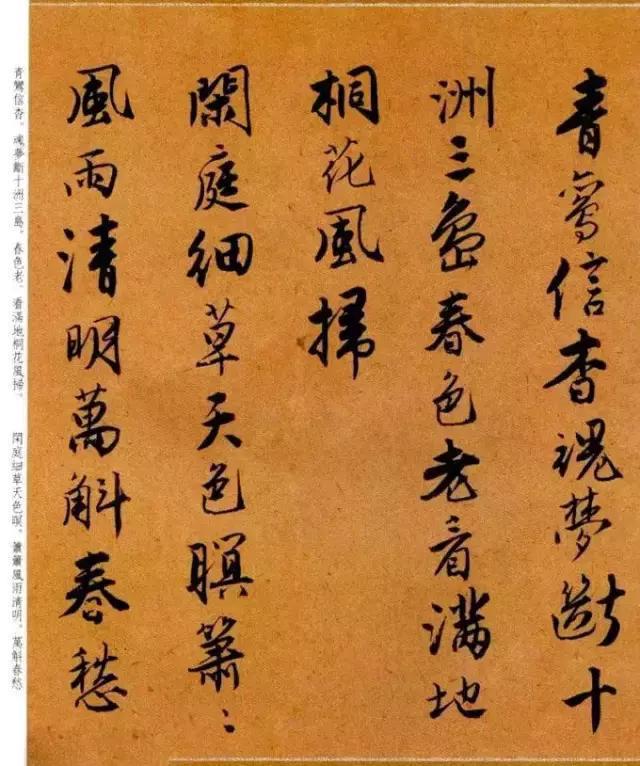 青鸞信杳魂夢斷十
洲三島春色老看滿地
桐花風掃
閑庭細草天色暝蕭〻
風雨清明萬斛春愁
青鸞信杳。魂夢斷十洲三島。春色老。看滿地桐花風掃。 閑庭細草天色暝。蕭蕭風雨清明。萬斛春愁